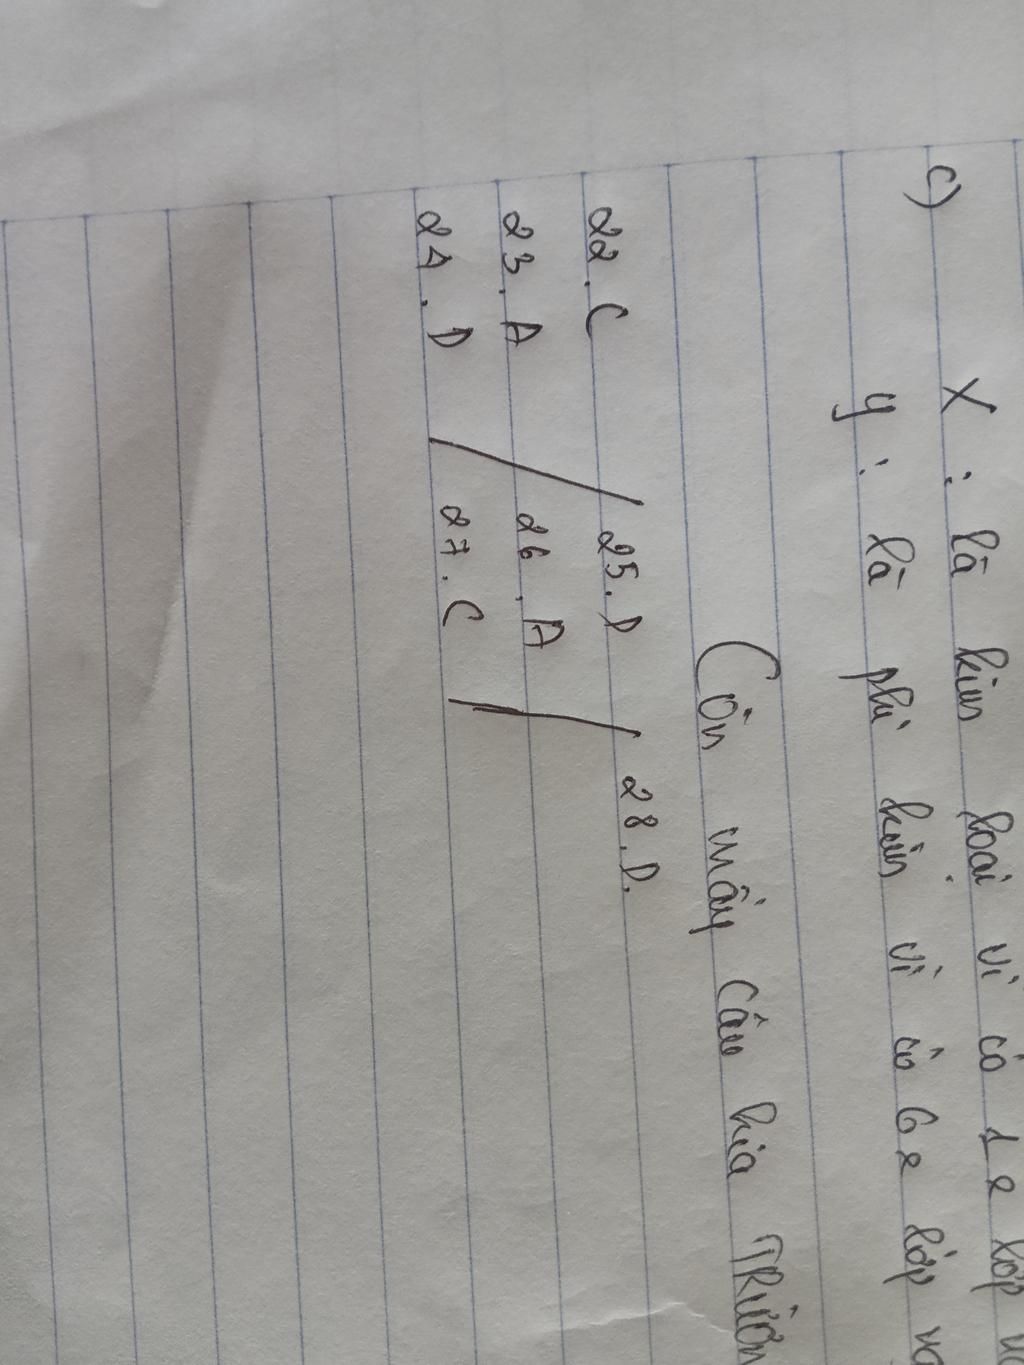 c) X : là kim loại vì có 1e lớp
y : là phi kim vì có 6e lớp
Còn mấy câu kia
22. C / 25. D / 28. D.
23. A / 26. A
24. D / 27. C